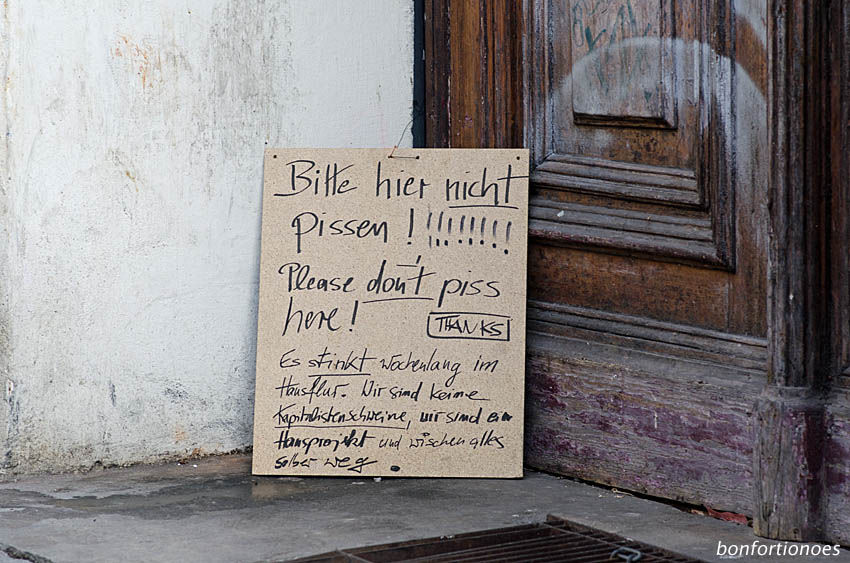 Bitte hier nicht
pissen ! !!!!!!!!
Please don't piss
here!
THANKS
Es stinkt wochenlang im
Hausflur. Wir sind keine
Kapitalistenschweine, wir sind ein
Hausprojekt und wischen alles
selber weg.
bonfortionoes